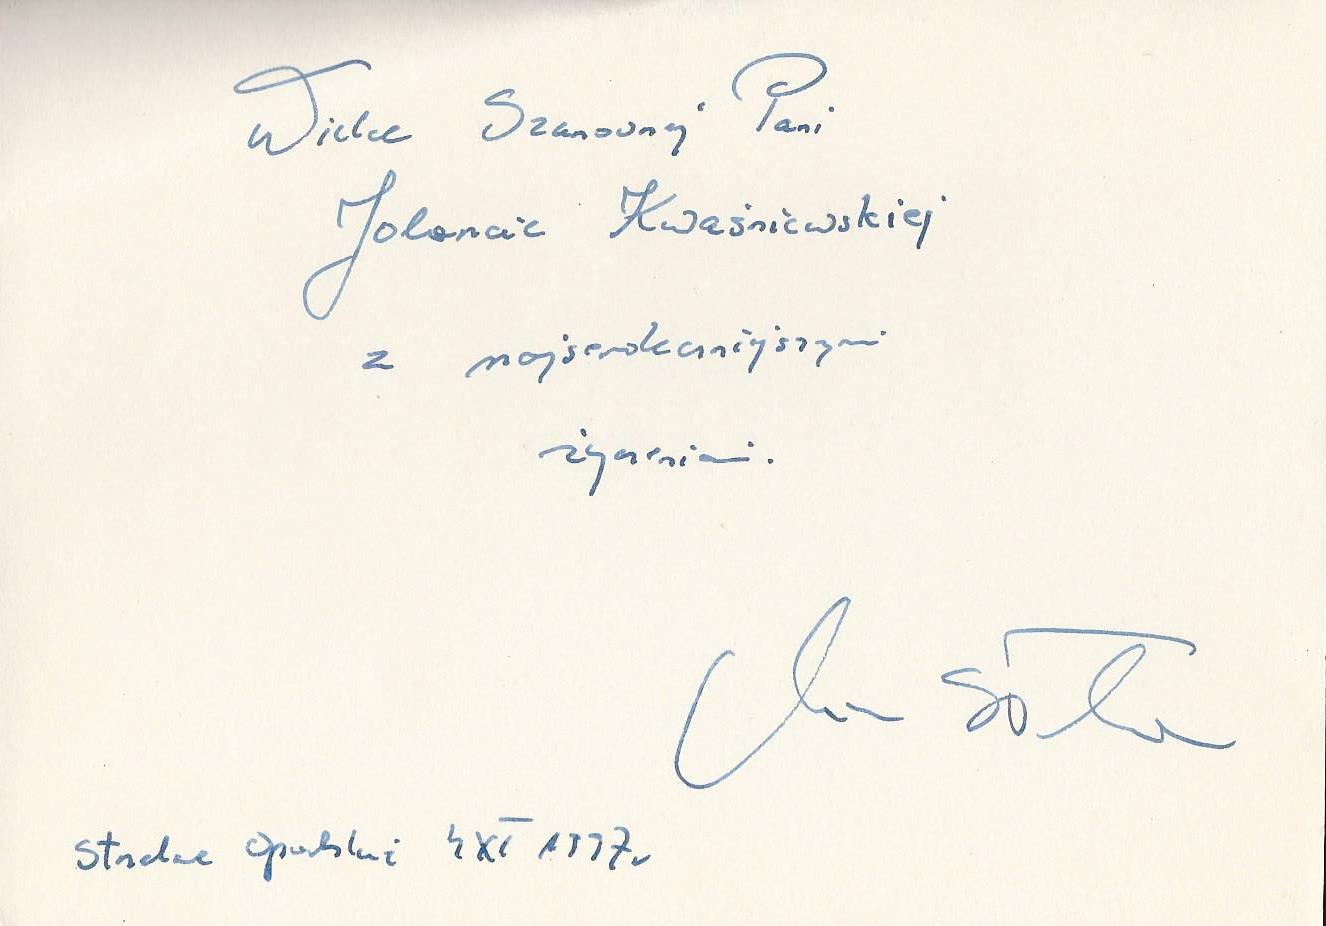 Wielce Szanownej Pani
Jolancie Kwaśniewskiej
z najserdeczniejszymi
życzeniami.
Strzelce Opolskie 4 XI 1997r